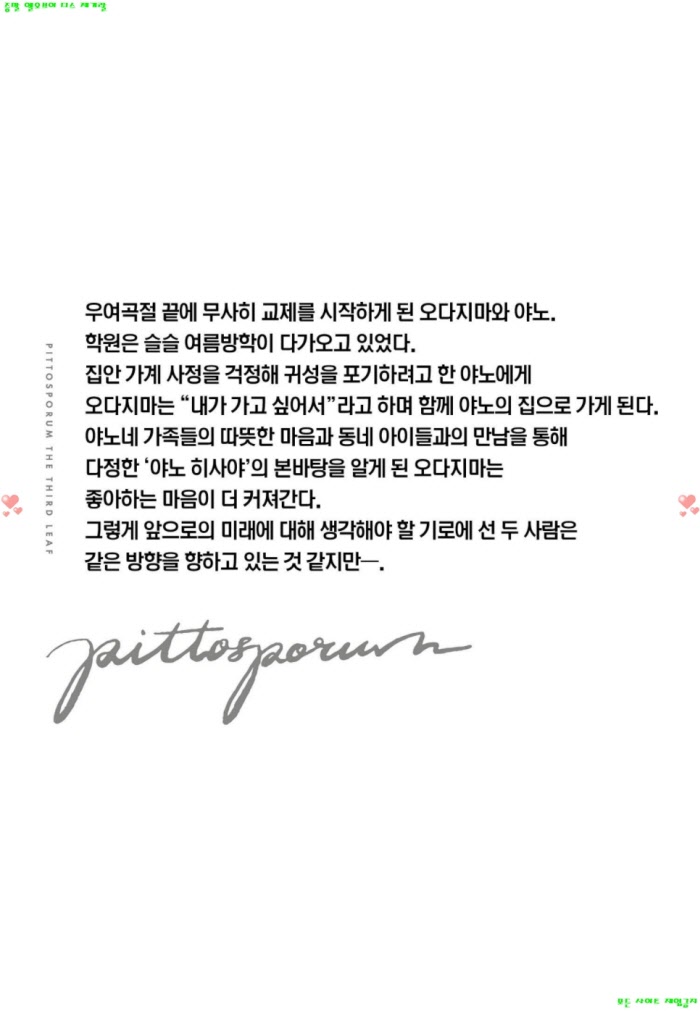 우여곡절 끝에 무사히 교제를 시작하게 된 오다지마와 야노.
학원은 슬슬 여름방학이 다가오고 있었다.
집안 가계 사정을 걱정해 귀성을 포기하려고 한 야노에게
오다지마는 “내가 가고 싶어서”라고 하며 함께 야노의 집으로 가게 된다.
야노네 가족들의 따뜻한 마음과 동네 아이들과의 만남을 통해
다정한 ‘야노 히사야’의 본바탕을 알게 된 오다지마는
좋아하는 마음이 더 커져간다.
그렇게 앞으로의 미래에 대해 생각해야 할 기로에 선 두 사람은
같은 방향을 향하고 있는 것 같지만—.
PITTOSPORUM THE THIRD LEAF
pittosporum
모든 사이트